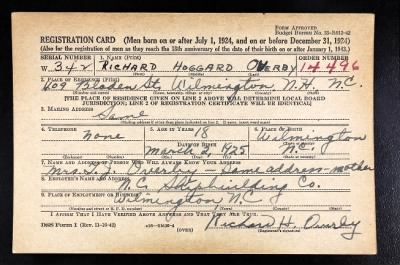 Form Approved
Budget Bureau No. 33-R012-42
REGISTRATION CARD (Men born on or after July 1, 1924, and on or before December 31, 1924)
(Also for the registration of men as they reach the 18th anniversary of the date of their birth on or after January 1, 1943.)
SERIAL NUMBER 1. NAME (Print) ORDER NUMBER
W 342 RICHARD HOGGARD OVERBY 14496
2. PLACE OF RESIDENCE (Print)
409 Bladen St. Wilmington N.H. N.C.
[THE PLACE OF RESIDENCE GIVEN ON LINE 2 ABOVE WILL DETERMINE LOCAL BOARD
JURISDICTION; LINE 2 OF REGISTRATION CERTIFICATE WILL BE IDENTICAL]
3. MAILING ADDRESS
Same
4. TELEPHONE 5. AGE IN YEARS 6. PLACE OF BIRTH
None 18 Wilmington
DATE OF BIRTH
March 2, 1925 N.C.
7. NAME AND ADDRESS OF PERSON WHO WILL ALWAYS KNOW YOUR ADDRESS
Overby - Same address - mother
8. EMPLOYER'S NAME AND ADDRESS
N.C. Shipbuilding Co.
9. PLACE OF EMPLOYMENT OR BUSINESS
Wilmington N.C.
I AFFIRM THAT I HAVE VERIFIED ABOVE ANSWERS AND THAT THEY ARE TRUE.
DSS Form 1 (Rev. 11-16-42) Richard H. Overby
(Registrant's signature)